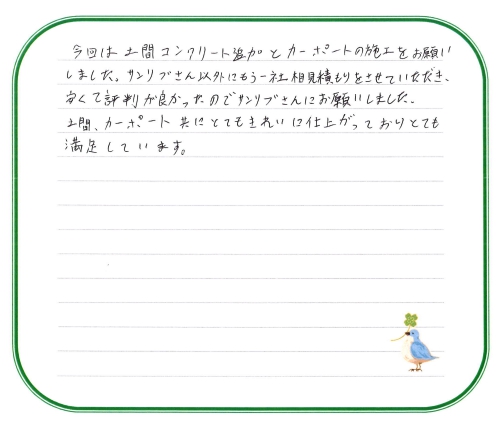 今回は土間コンクリート追加とカーポートの施工をお願い
しました。サンリブさん以外にもう一社相見積もりをさせていただき、
安くて評判が良かったのでサンリブさんにお願いしました。
土間、カーポート共にとてもきれいに仕上がっておりとても
満足しています。